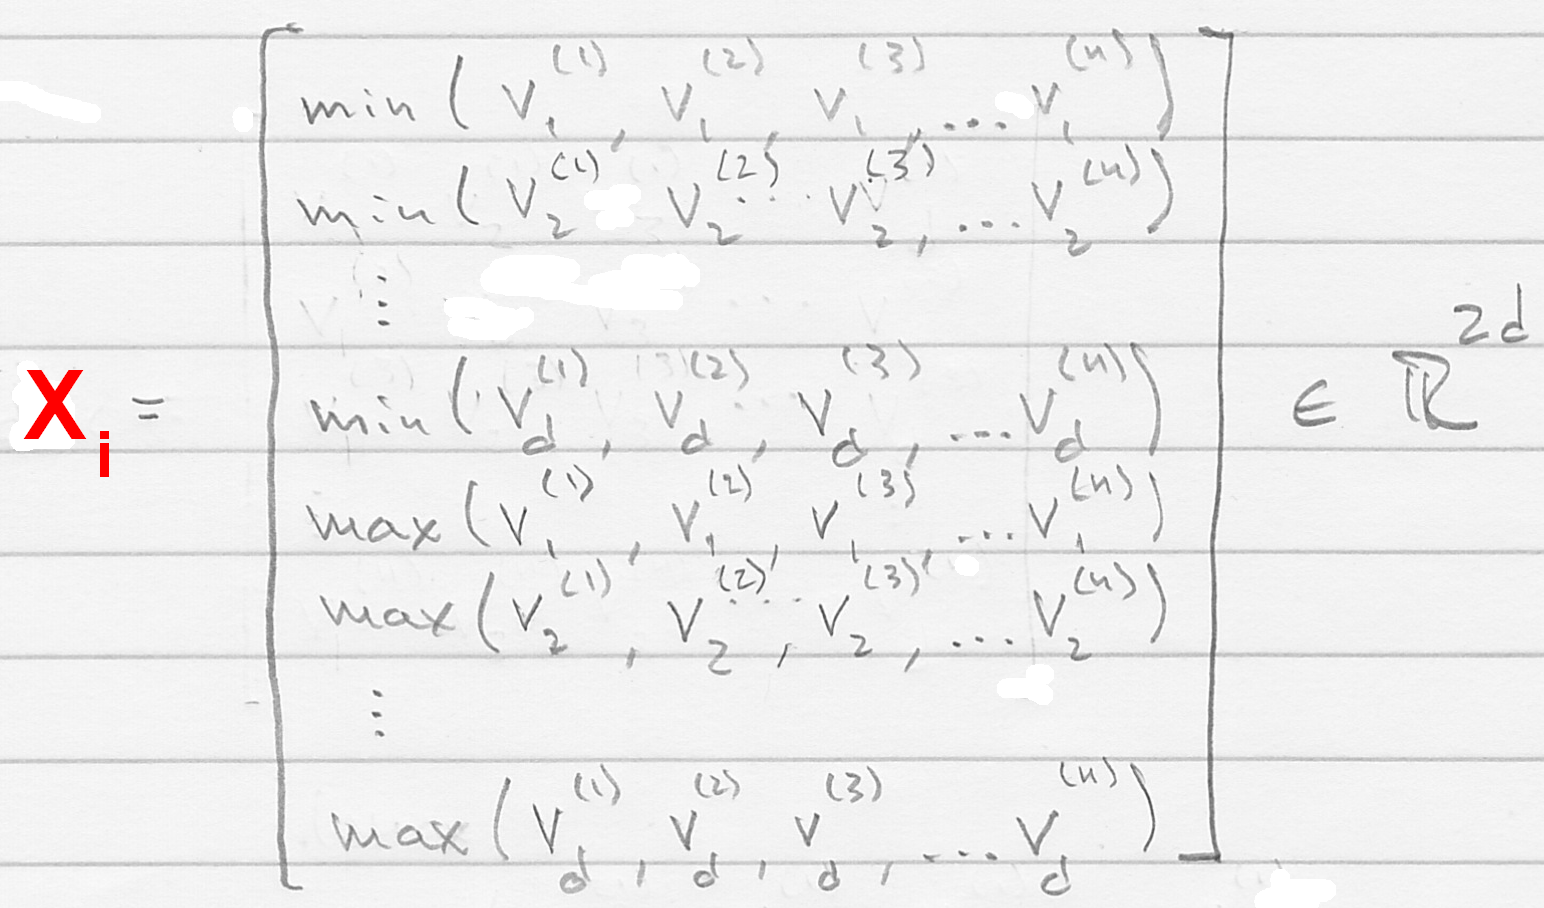 min ( V₁⁽¹⁾, V₁⁽²⁾, V₁⁽³⁾, ... V₁⁽ⁿ⁾ )
min ( V₂⁽¹⁾ V₂⁽²⁾ V₂⁽³⁾, ... V₂⁽ⁿ⁾ )
⋮
min ( V_d⁽¹⁾, V_d⁽²⁾, V_d⁽³⁾, ... V_d⁽ⁿ⁾ )
X_i = [ ] ∈ ℝ^{2d}
max ( V₁⁽¹⁾, V₁⁽²⁾, V₁⁽³⁾, ... V₁⁽ⁿ⁾ )
max ( V₂⁽¹⁾, V₂⁽²⁾, V₂⁽³⁾, ... V₂⁽ⁿ⁾ )
⋮
max ( V_d⁽¹⁾, V_d⁽²⁾, V_d⁽³⁾, ... V_d⁽ⁿ⁾ )